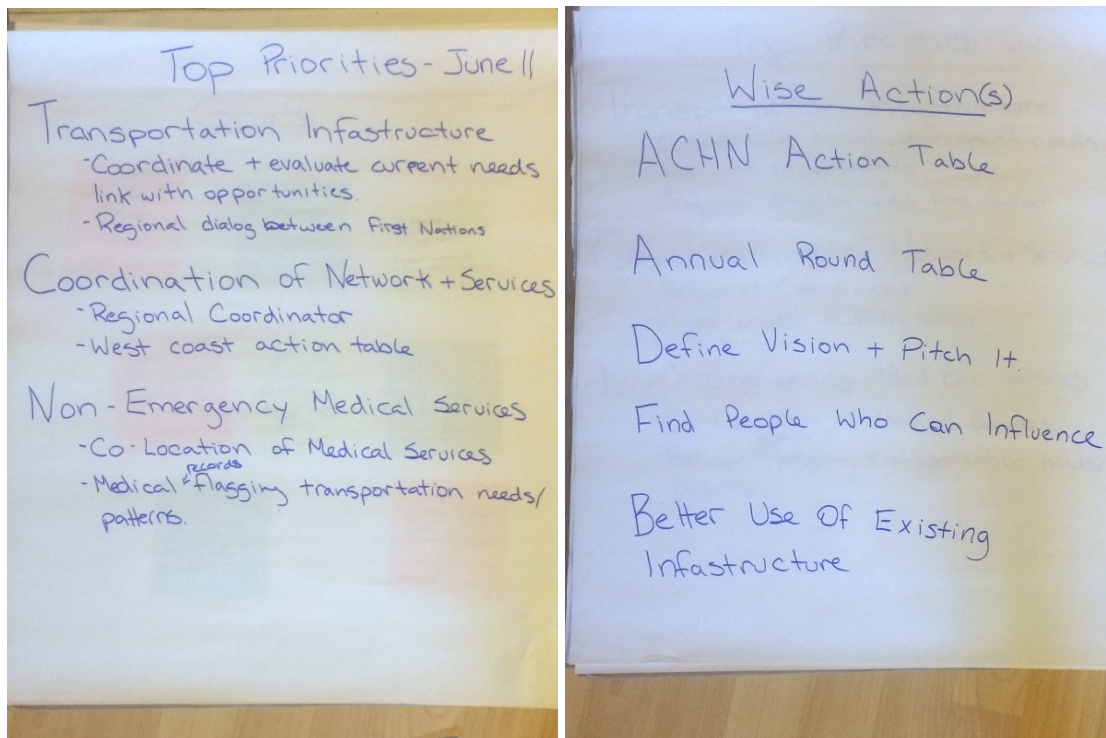 Top Priorities - June 11
Transportation Infastructure
- Coordinate + evaluate current needs
link with opportunities.
- Regional dialog between First Nations
Coordination of Network + Services
- Regional Coordinator
- West coast action table
Non - Emergency Medical Services
- Co-Location of Medical Services
records
- Medical flagging transportation needs/
patterns.
Wise Action(s)
ACHN Action Table
Annual Round Table
Define Vision + Pitch It.
Find People Who Can Influence
Better Use Of Existing
Infastructure